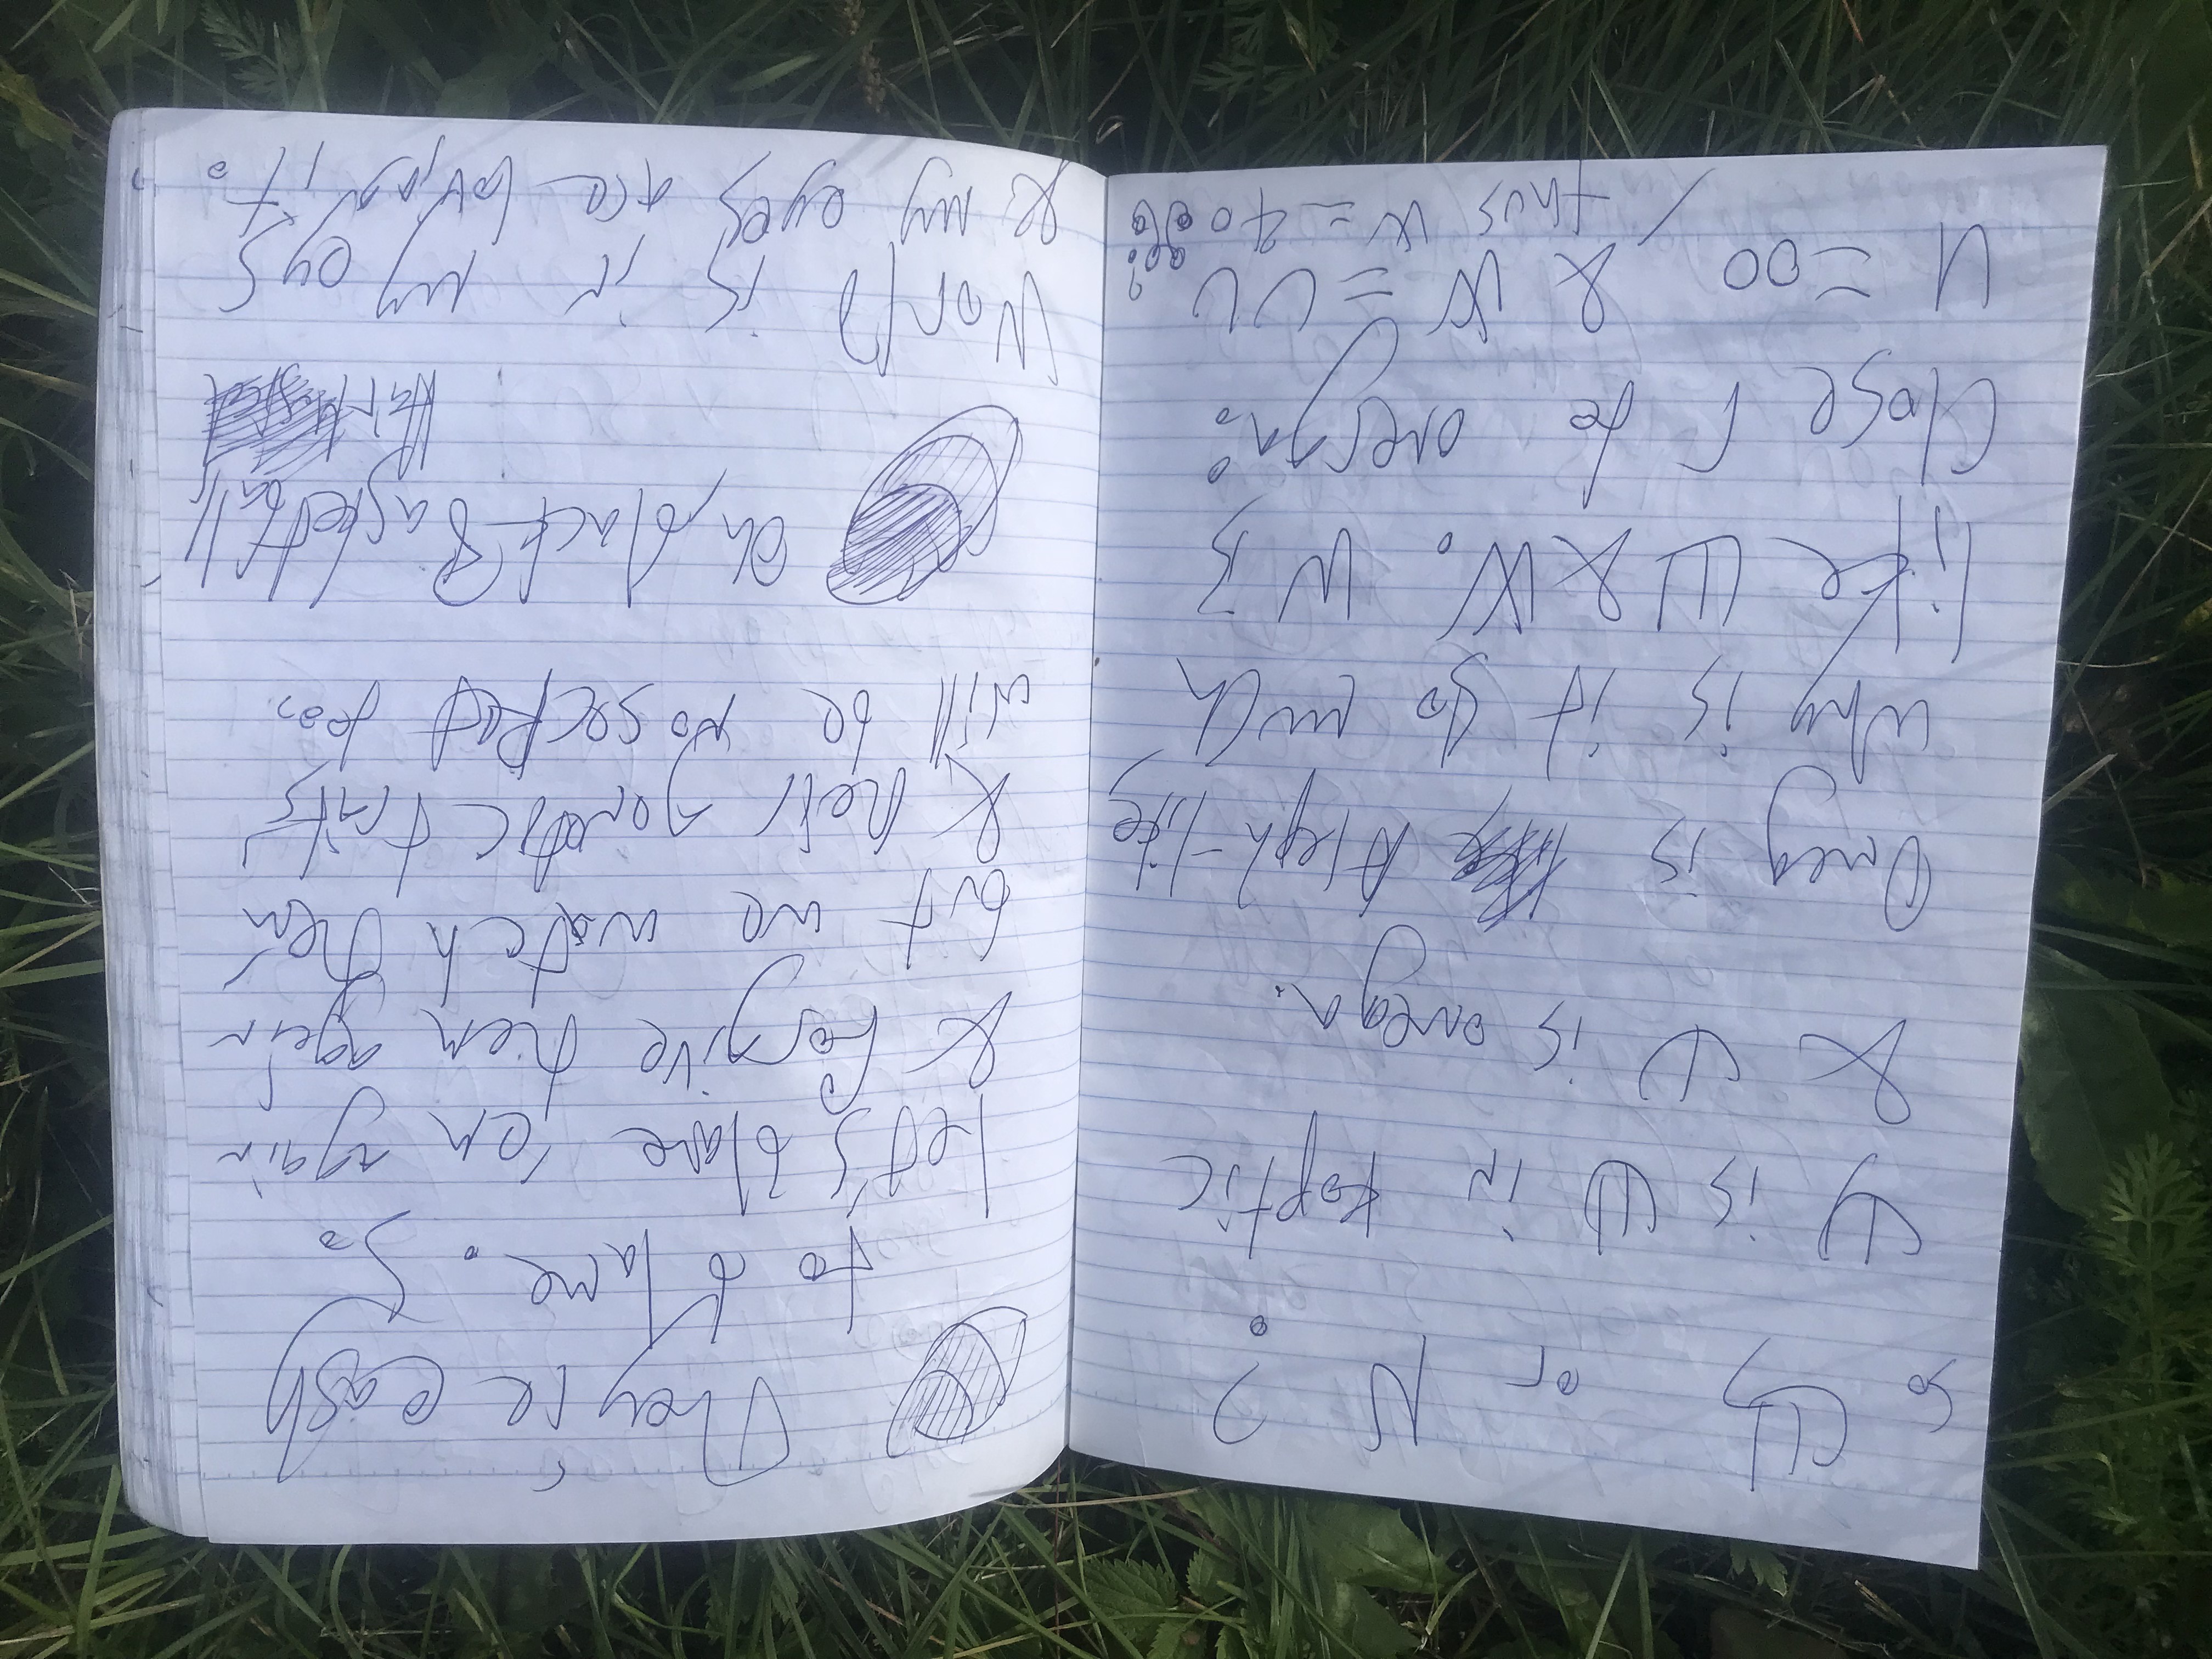 so Щ or N?
Ψ is Ψ in Koptic
& Ψ is omega.
Omeg is Aleph-like,
why is it so much
like Ш & W. W is
Closer to omega:
U = oo, & W = UU
thus W = 4 o
They're easy
to blame. So
let's blame 'em again
& forgive them again
but we watch them
& their genetic traits
will be no secret too.
Oh, black Basketball,
Hair
World is in my eyes
& my eyes are lovin' it.